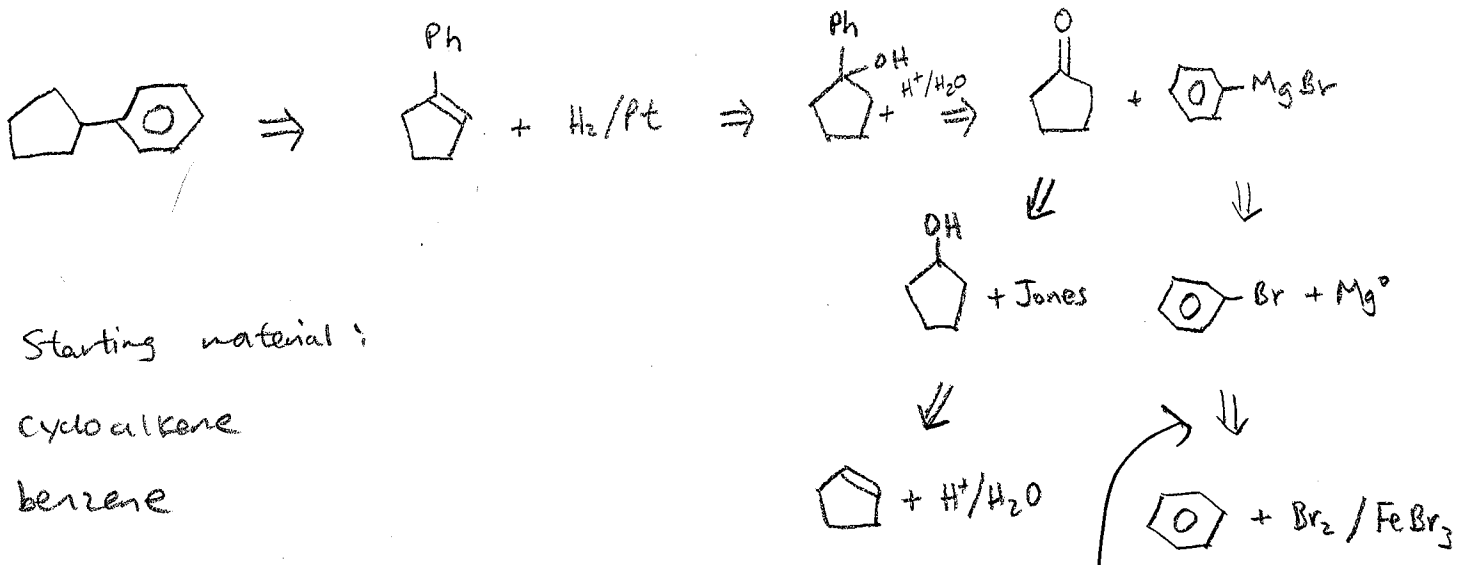 Ph
+ H₂/Pt
Ph
OH
+ H⁺/H₂O
O
+ MgBr
OH
+ Jones
Br + Mg°
Starting material:
cycloalkene
benzene
+ H⁺/H₂O
+ Br₂ / FeBr₃